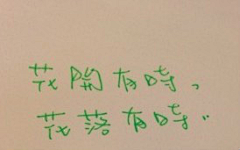 花開有時、
花落有時..